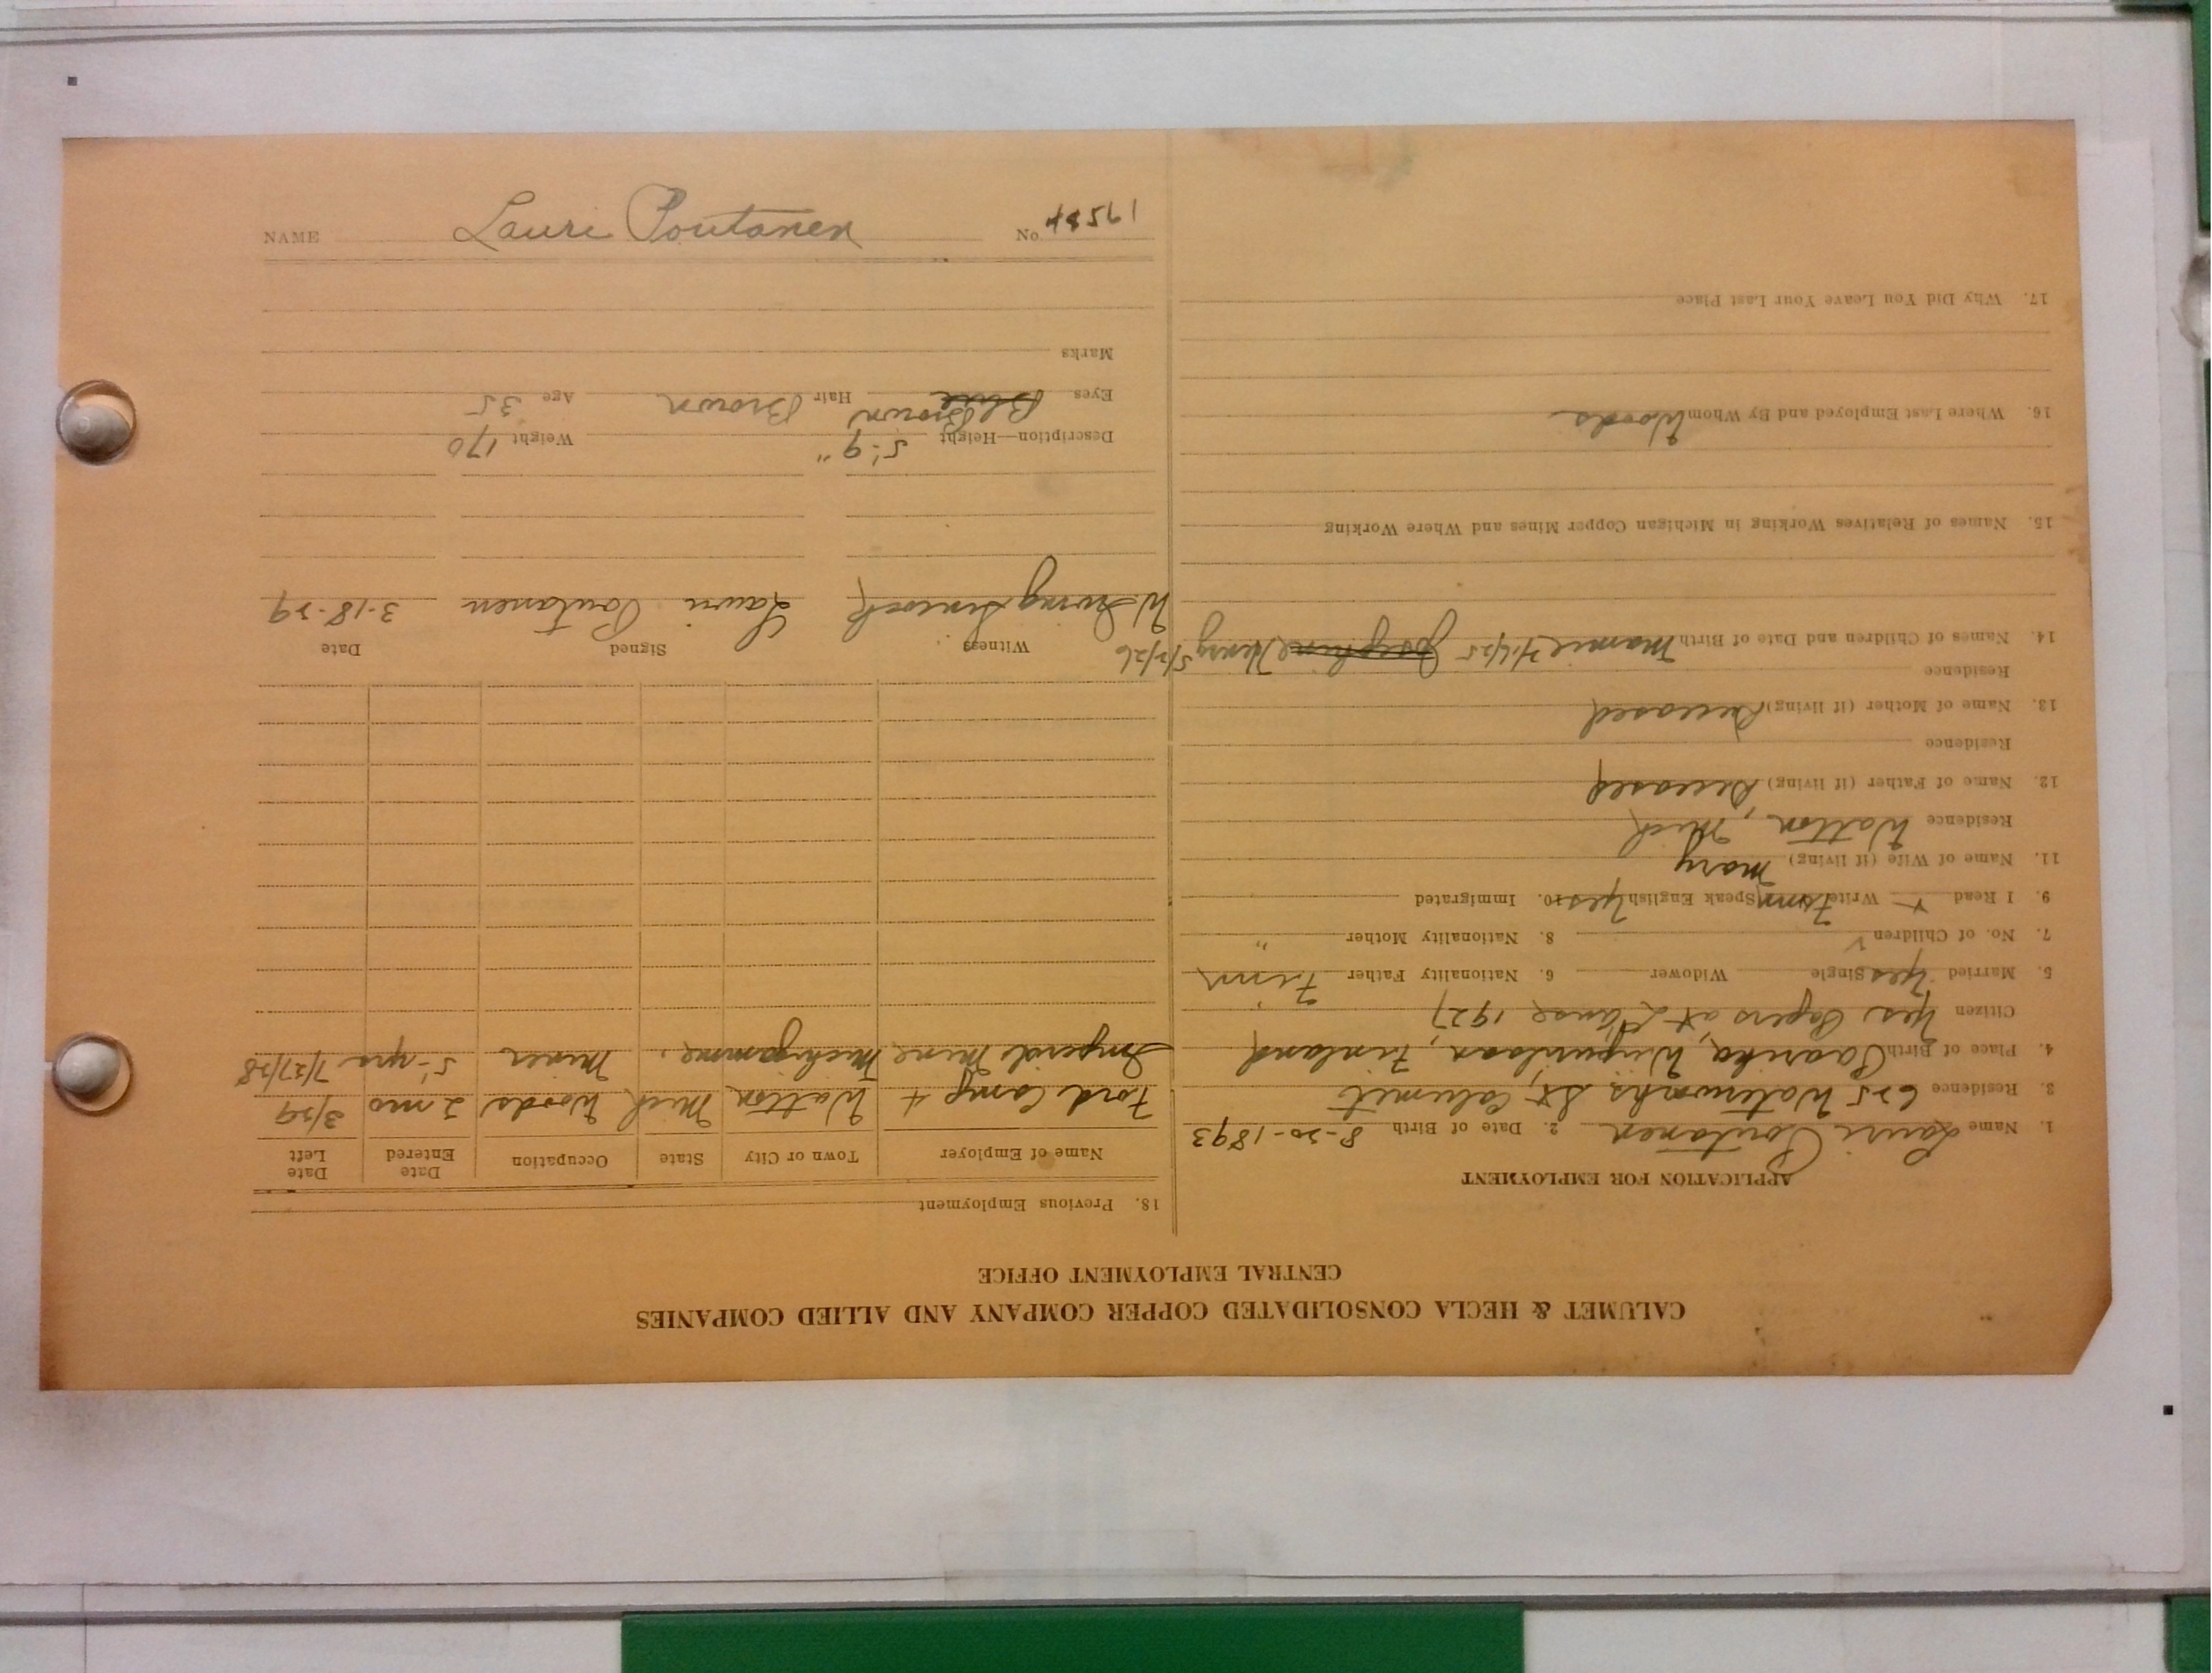 CALUMET & HECLA CONSOLIDATED COPPER COMPANY AND ALLIED COMPANIES
CENTRAL EMPLOYMENT OFFICE
APPLICATION FOR EMPLOYMENT
1. Name Lauri Poutanen 2. Date of Birth 8-20-1893
3. Residence 625 Waterworks St, Calumet
4. Place of Birth Saarika, Finland
Citizen Yes Papers at L'anse 1927
5. Married Yes Single Widower 6. Nationality Father Finn
7. No. of Children 8. Nationality Mother "
9. I Read Write Finn Speak English Yes 10. Immigrated
11. Name of Wife (if living) Mary
Residence Watton, Mich
12. Name of Father (if living) Deceased
Residence
13. Name of Mother (if living) Deceased
Residence
14. Names of Children and Date of Birth Mamie Josephine Henry 5/2/26
15. Names of Relatives Working in Michigan Copper Mines and Where Working
16. Where Last Employed and By Whom Woods
17. Why Did You Leave Your Last Place
18. Previous Employment
Name of Employer Town or City State Occupation Date Entered Date Left
Ford Camp 4 Watton Mich Woods 2 mo 3/29
Imperial Mine Michigamme, Miner 5 yrs 7/27/28
Witness Signed Date
W Irving Lauri Poutanen 3-18-29
Description—Height 5'-9" Weight 170
Eyes Blue Brown Hair Brown Age 35
Marks
NAME Lauri Poutanen No 48561